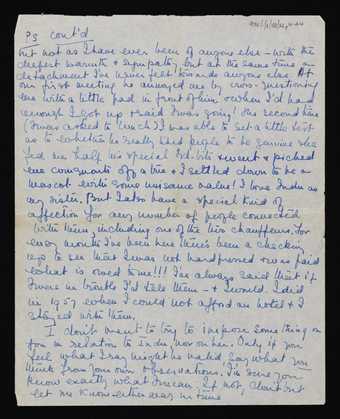 P3 cont'd
but not as I have ever been of anyone else – with the
deepest warmth & sympathy but at the same time a
detachment I've never felt towards anyone else. At
our first meeting he annoyed me by cross-questioning
me with a little pad in front of him & when I'd had
enough I got up & said I was going! The second time
(I was asked to lunch) I was able to set a little test
as to whether he really liked people to be genuine. She
fed me half his special & went & picked
me off a tree & I settled down to be a
mascot with some nuisance value! I love Indu as
my sister. But I also have a special kind of
affection for any number of people connected
with them, including one of the two chauffeurs. For
every month I've been here there's been a checking
up to see that I was not hard pressed & was paid
what is owed to me!!! I've always said that if
I were in trouble I'd tell them – & I would. I did
in 1957 when I could not afford an hotel & I
stayed with them.
I don't want to try to impose something on
you in relation to Indu, nor on her. Only if you
feel what I say might be valid say what you
think from your own observations. I'm sure you
know exactly what I mean. If not, don't
let me know either way in time